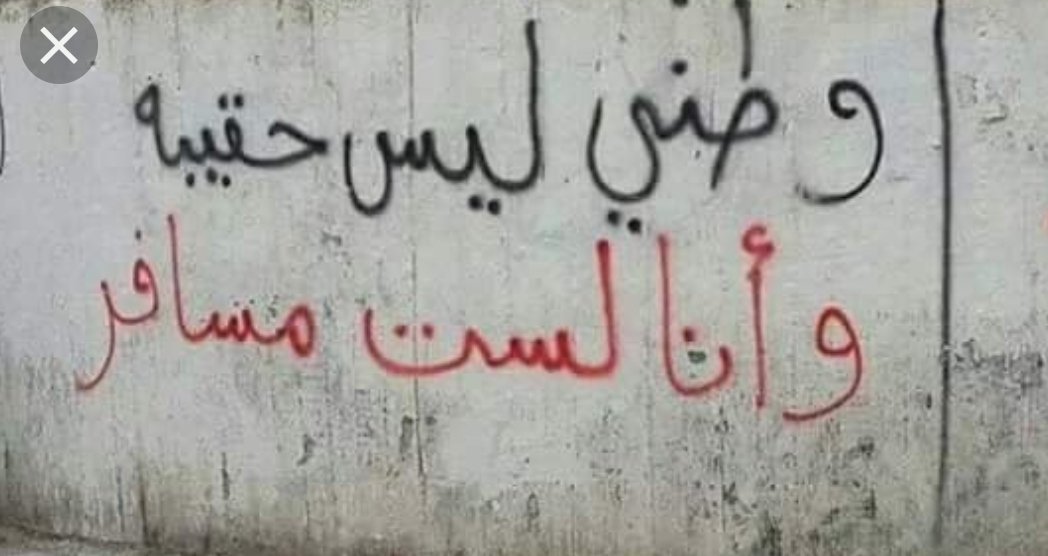 وطني ليس حقيبه
وأنا لست مسافر